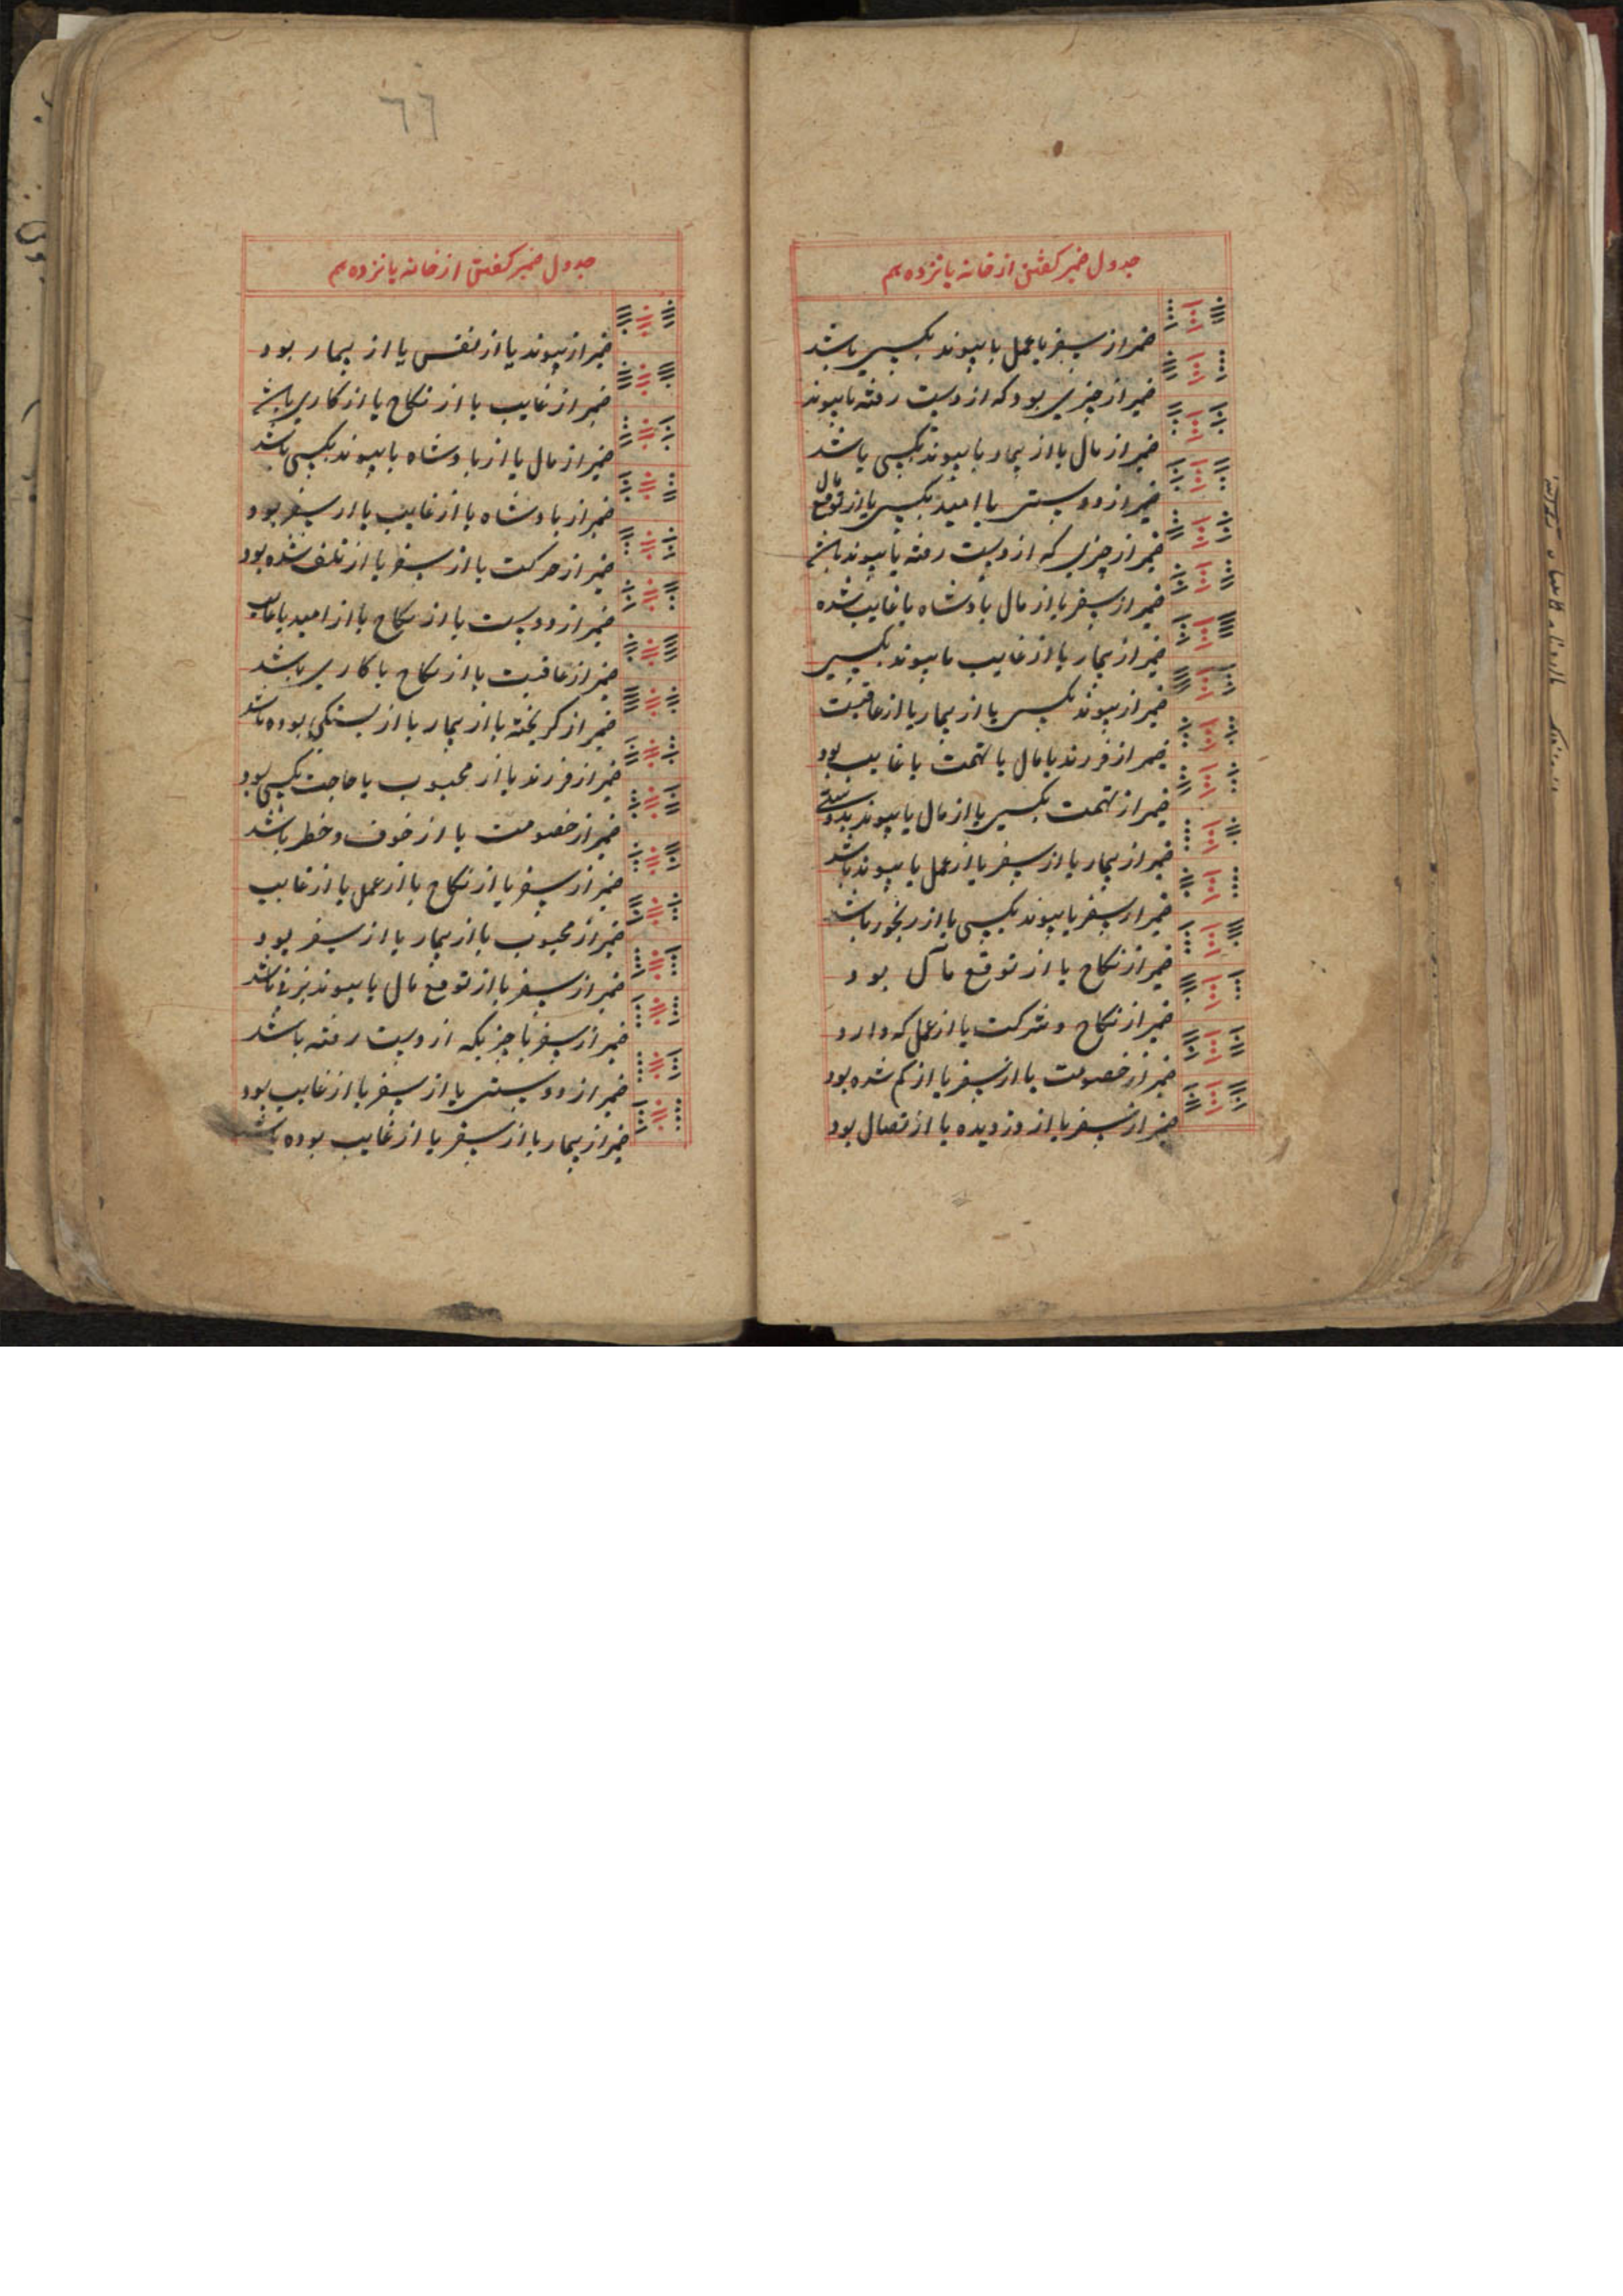 جدول ضمیر کفتن از خانه پانزدهم
ضمیر از سفر یا عمل یا پیوند بکسی باشد
ضمیر از چیزی بود که از دست رفته یا پیوند
ضمیر از مال یا از بیمار یا پیوند بکسی باشد
ضمیر از دوستی یا امید بکسی یا از توقع مال
ضمیر از چیزی که از دست رفته یا پیوند باشد
ضمیر از سفر یا از مال پادشاه یا غایب شده
ضمیر از بیمار یا از غایب یا پیوند بکسی
ضمیر از پیوند بکسی یا از بیمار یا از عاقبت
ضمیر از فرزند یا مال یا تهمت یا غایب بود
ضمیر از تهمت بکسی یا از مال یا پیوند بدوستی
ضمیر از بیمار یا از سفر یا از عمل یا پیوند باشد
ضمیر از سفر یا پیوند بکسی یا از رنجور باشد
ضمیر از نکاح یا از توقع مال بود
ضمیر از نکاح و شرکت یا از عمل که دارد
ضمیر از خصومت یا از سفر یا از کم شده بود
ضمیر از سفر یا از دزدیده یا از تصال بود
٦٦
جدول ضمیر کفتن از خانه پانزدهم
ضمیر از پیوند یا از نفس یا از بیمار بود
ضمیر از غایب یا از نکاح یا از کاری باشد
ضمیر از مال یا از پادشاه یا پیوند بکسی باشد
ضمیر از پادشاه یا از غایب یا از سفر بود
ضمیر از حرکت یا از سفر یا از تلف شده بود
ضمیر از دوست یا از نکاح یا از امید یا غایب
ضمیر از عاقبت یا از نکاح یا کاری باشد
ضمیر از کریخته یا از بیمار یا از بستکی بوده باشد
ضمیر از فرزند یا از محبوب یا حاجت بکسی بود
ضمیر از خصومت یا از خوف و خطر باشد
ضمیر از سفر یا از نکاح یا از عمل یا از غایب
ضمیر از محبوب یا از بیمار یا از سفر بود
ضمیر از سفر یا از توقع مال یا پیوند بزنا باشد
ضمیر از سفر یا چیزیکه از دست رفته باشد
ضمیر از دوستی یا از سفر یا از غایب بود
ضمیر از بیمار یا از سفر یا از غایب بوده باشد